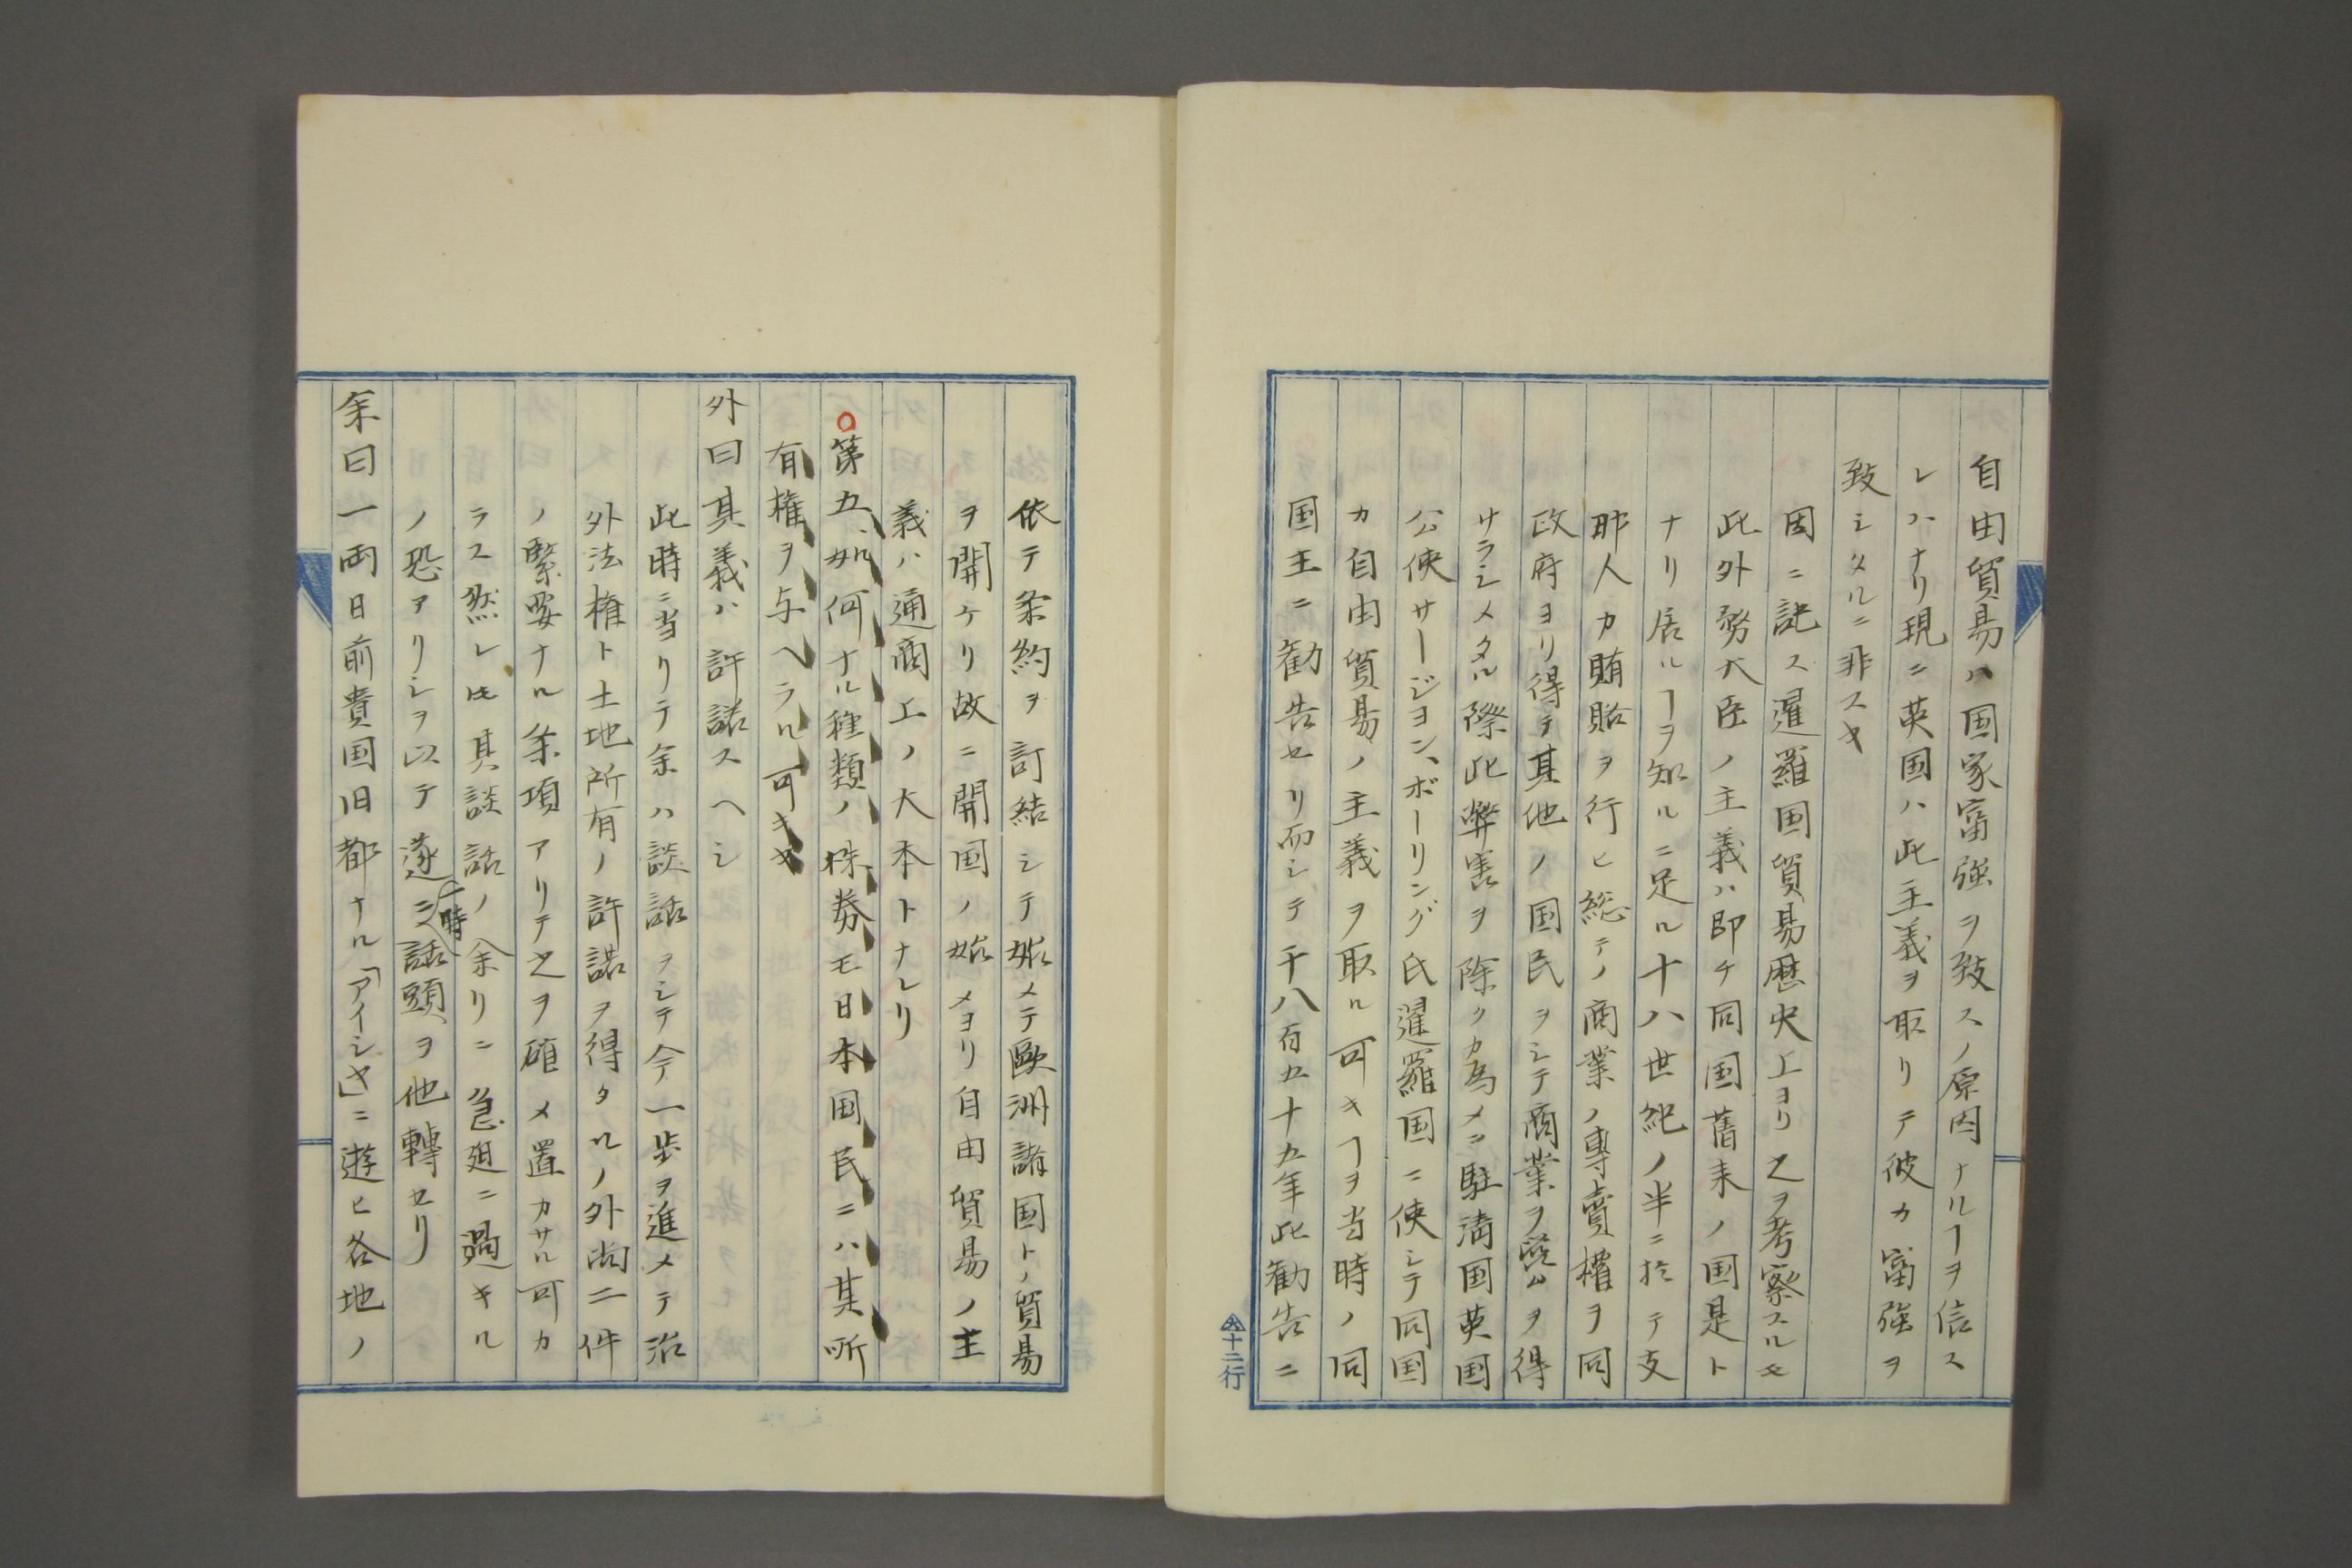 自由貿易ハ国家富強ヲ致スノ原因ナルヿヲ信ス
レハナリ現ニ英国ハ此主義ヲ取リテ彼カ富強ヲ
致シタルニ非スヤ
因ニ記ス暹羅国貿易歴史上ヨリ之ヲ考察スルモ
此外務大臣ノ主義ハ即チ同国舊来ノ国是ト
ナリ居ルヿヲ知ルニ足ル十八世紀ノ半ニ於テ支
那人カ賄賂ヲ行ヒ総テノ商業ノ専賣權ヲ同
政府ヨリ得テ其他ノ国民ヲシテ商業ヲ営ムヲ得
サラシメタル際此弊害ヲ除クカ為メニ駐清国英国
公使サージヨン、ボーリング氏暹羅国ニ使シテ同国
カ自由貿易ノ主義ヲ取ル可キヿヲ当時ノ同
国主ニ勧告セリ而シテ千八百五十五年此勧告ニ
十二行
依テ条約ヲ訂結シテ始メテ歐洲諸国トノ貿易
ヲ開ケリ故ニ開国ノ始メヨリ自由貿易ノ主
義ハ通商上ノ大本トナレリ
第五、如何ナル種類ノ株券モ日本国民ニハ其所
有権ヲ与ヘラル可キヤ
外曰其義ハ許諾スヘシ
此時ニ当リテ余ハ談話ヲシテ今一歩ヲ進メテ治
外法権ト土地所有ノ許諾ヲ得タルノ外尚二件
ノ緊要ナル条項アリテ之ヲ確メ置カサル可カ
ラス然レ𪜈其談話ノ余リニ急廹ニ過キル
ノ恐アリシヲ以テ遂ニ一時話頭ヲ他轉セリ
余曰一両日前貴国旧都ナル「アイシヤ」ニ遊ヒ各地ノ